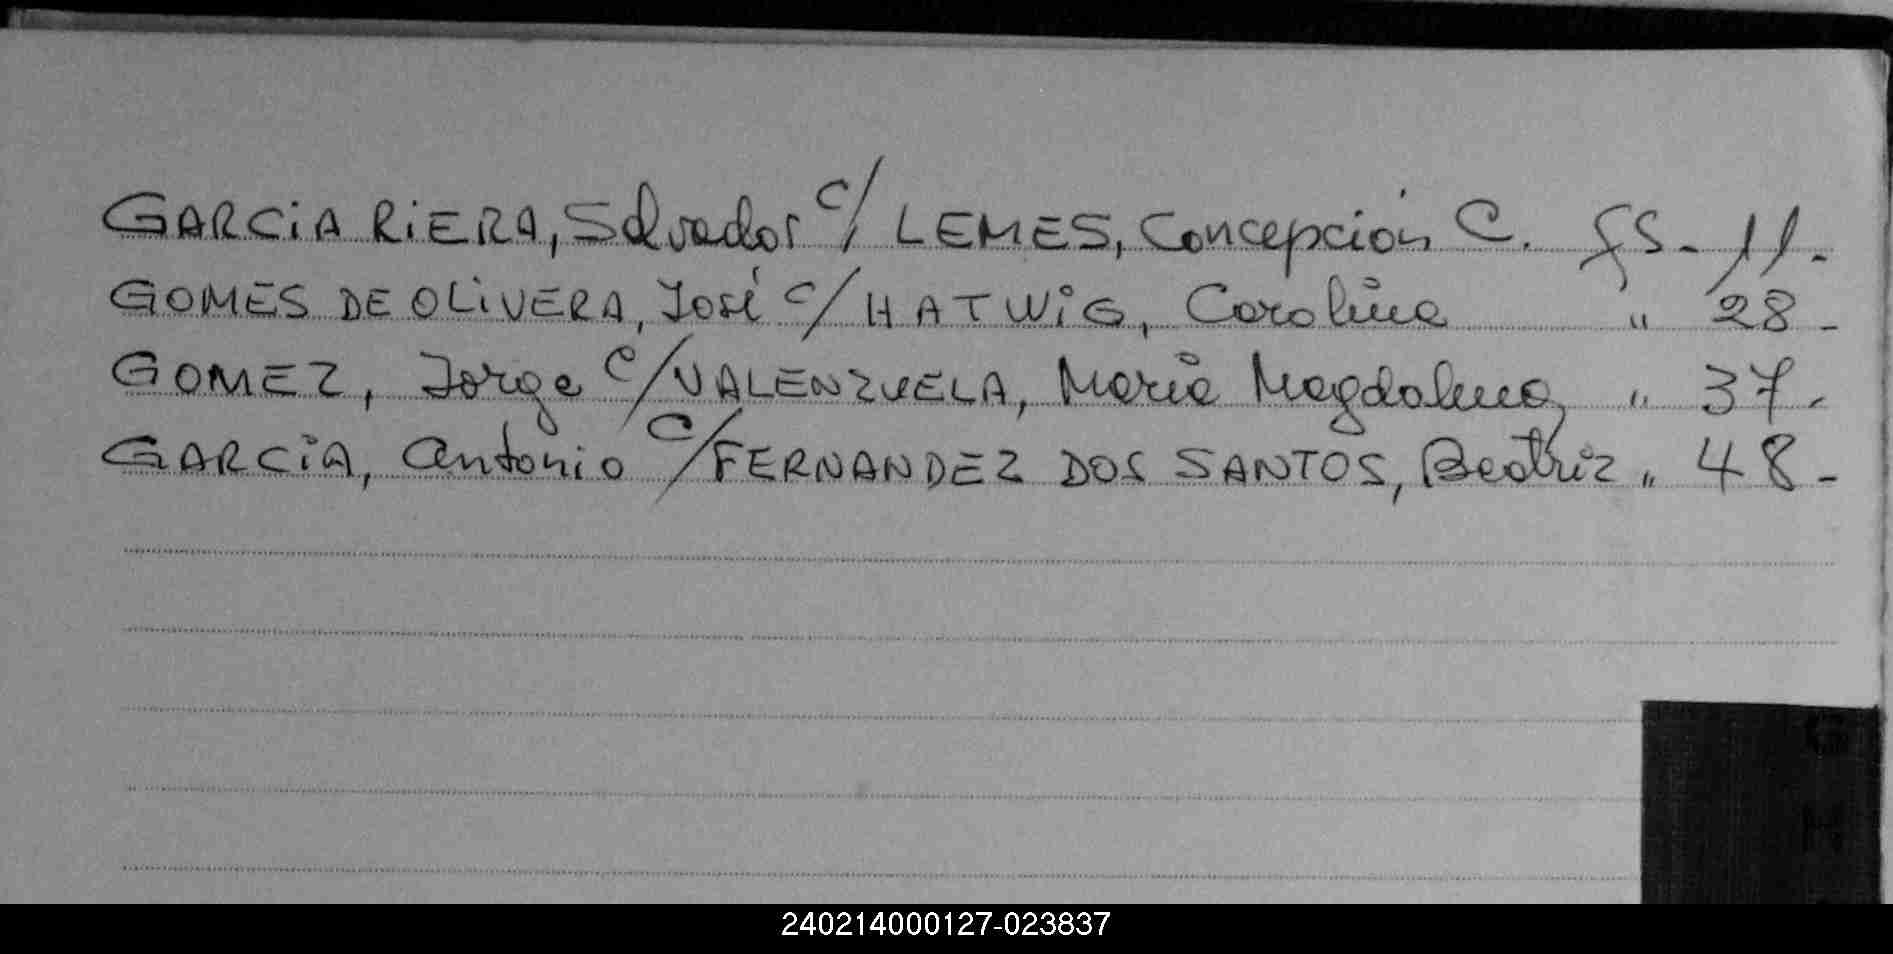 GARCIA RIERA, Salvador c/ LEMES, Concepción C. fs. 11.
GOMES DE OLIVERA, José c/ HATWIG, Carolina " 28 -
GOMEZ, Jorge c/ VALENZUELA, María Magdalena, " 37.
GARCIA, Antonio c/ FERNANDEZ DOS SANTOS, Beatriz " 48 -
G
H
240214000127-023837